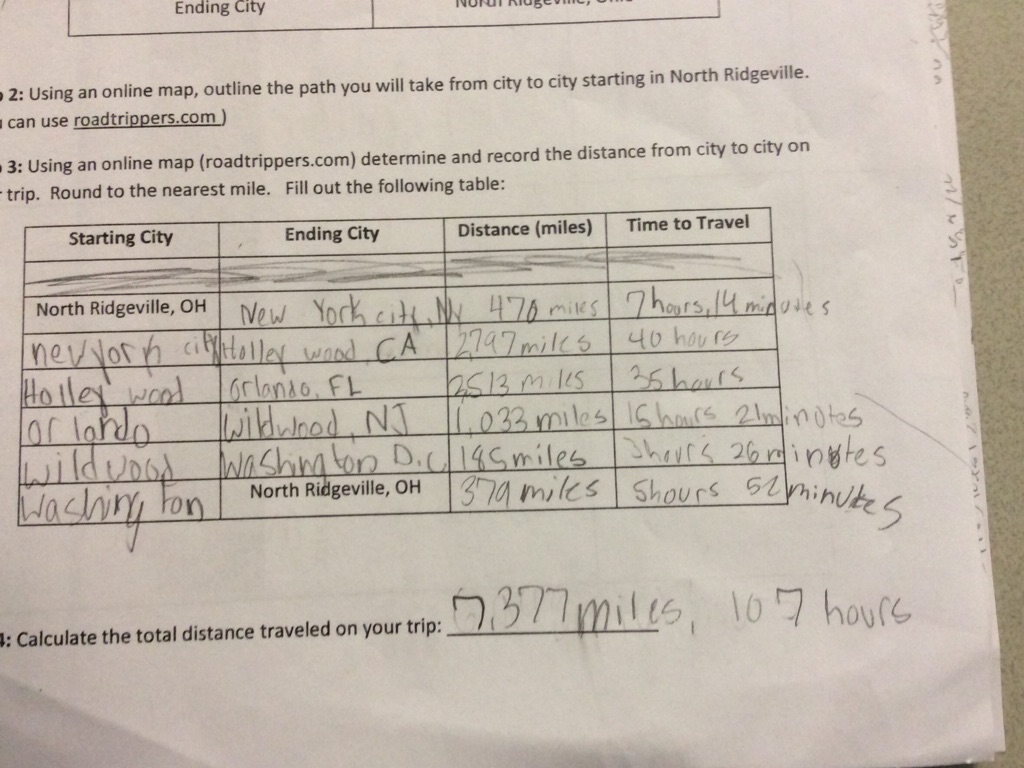 Ending City
2: Using an online map, outline the path you will take from city to city starting in North Ridgeville.
can use roadtrippers.com )
3: Using an online map (roadtrippers.com) determine and record the distance from city to city on
trip. Round to the nearest mile. Fill out the following table:
Starting City Ending City Distance (miles) Time to Travel
North Ridgeville, OH New York city, Ny 470 miles 7 hours, 14 minutes
new york city Holley wood, CA 2797 miles 40 hours
Holley wood Orlando, FL 2513 miles 35 hours
orlando Wildwood, NJ 1,033 miles 15 hours 21 minutes
wildwood Washington D.C 185 miles 3 hours 26 minutes
Washington North Ridgeville, OH 379 miles 5 hours 52 minutes
4: Calculate the total distance traveled on your trip: 7,377 miles, 107 hours